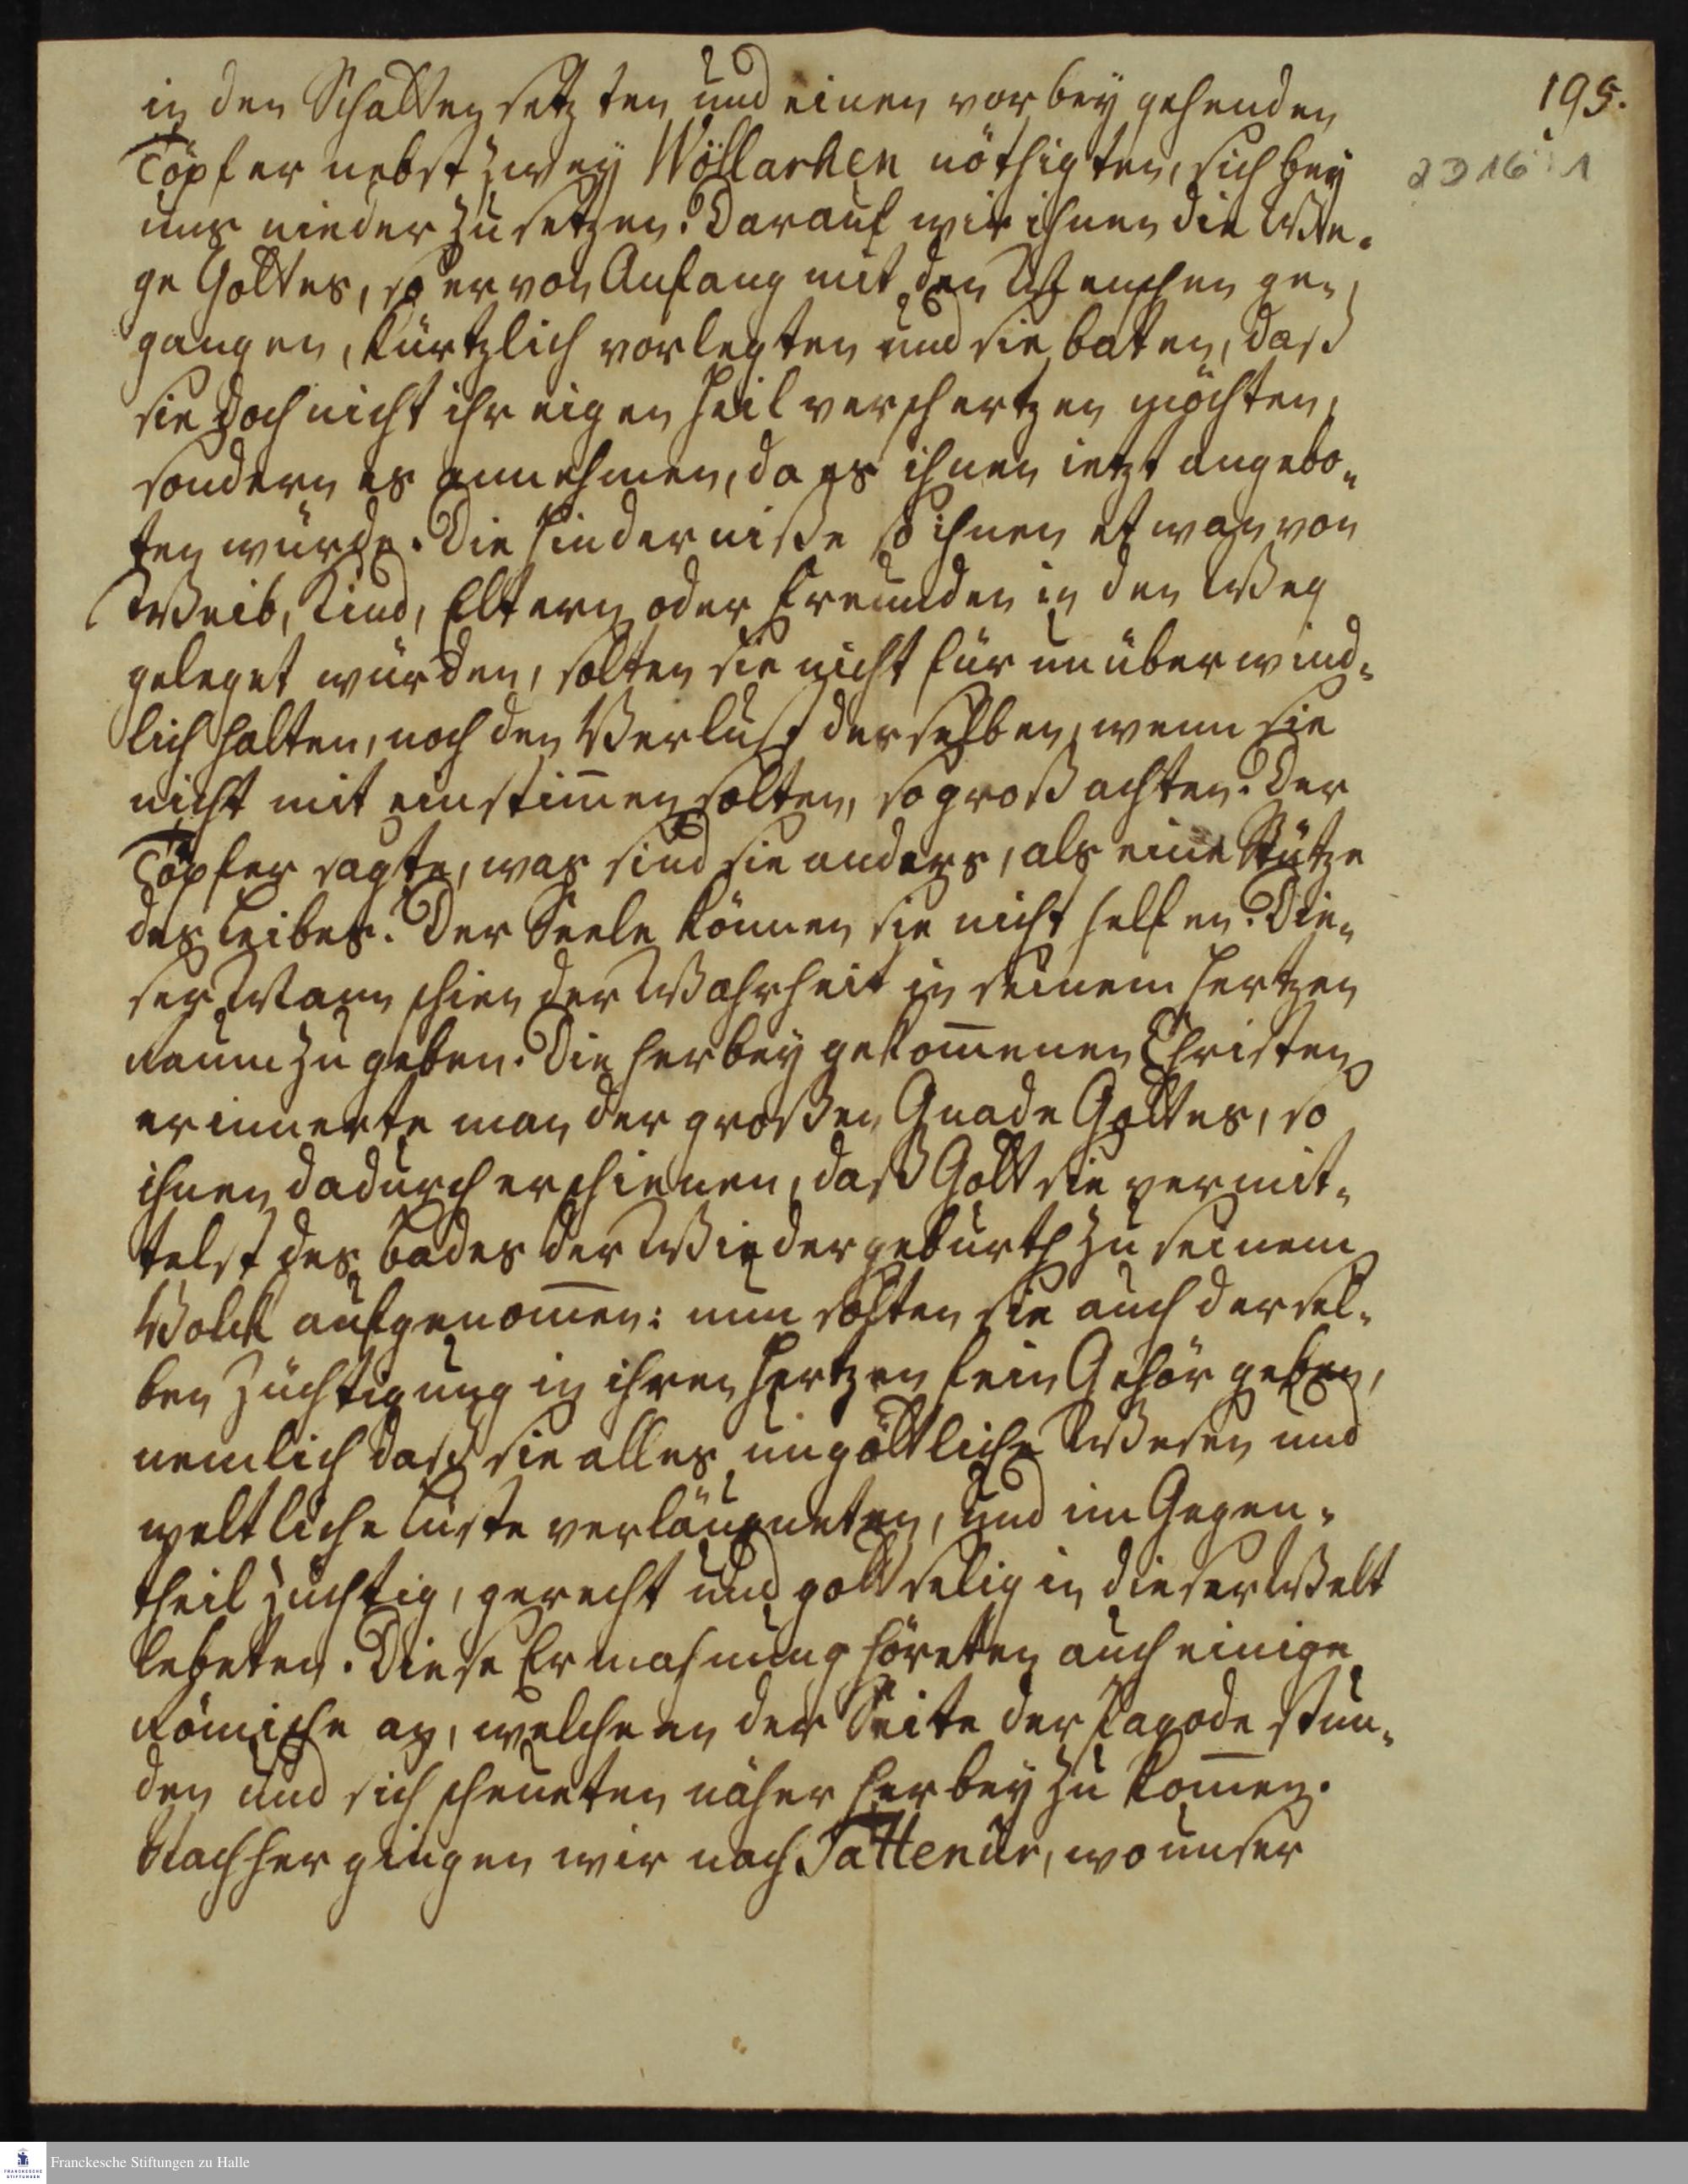 195.
2 D 16 : 1
in den Schatten setzten und einen vorbey gehenden
Töpfer nebst zwey Wöllarhen nöthigten, sich bey
uns nieder zu setzen. Darauf wir ihnen die We-
ge Gottes, so er von Anfang mit den Menschen ge-
gangen, kürtzlich vorlegten und sie baten, daß
sie doch nicht ihr eigen Heil verschertzen möchten,
sondern es annehmen, da es ihnen ietzt angebo-
ten würde. Die Hinderniße so ihnen etwan von
Weib, Kind, Eltern oder Freunden in den Weg
geleget würden, solten sie nicht für unüberwind-
lich halten, noch den Verlust derselben, wenn sie
nicht mit einstim̄en solten, so groß achten. Der
Töpfer sagte, was sind sie anders, als eine Stütze
des Leibes. Der Seele können sie nicht helfen. Die-
ser Mann schien der Wahrheit in seinem Hertzen
Raum zu geben. Die herbey gekom̄enen Christen
erinnerte man der großen Gnade Gottes, so
ihnen dadurch erschienen, daß Gott sie vermit-
telst des Bades der Wiedergeburth zu seinem
Volck aufgenom̄en: nun solten sie auch dersel-
ben Züchtigung in ihren Hertzen fein Gehör geben,
nemlich daß sie alles ungöttliche Wesen und
weltliche Lüste verläugneten, und im Gegen-
theil züchtig, gerecht und gottselig in dieser Welt
lebeten. Diese Ermahnung höreten auch einige
Römische an, welche an der Seite der Pagode stun-
den und sich scheueten näher herbey zu kom̄en.
Nachher gingen wir nach Tattenur, wo unser
Franckesche Stiftungen zu Halle
FRANCKESCHE
STIFTUNGEN